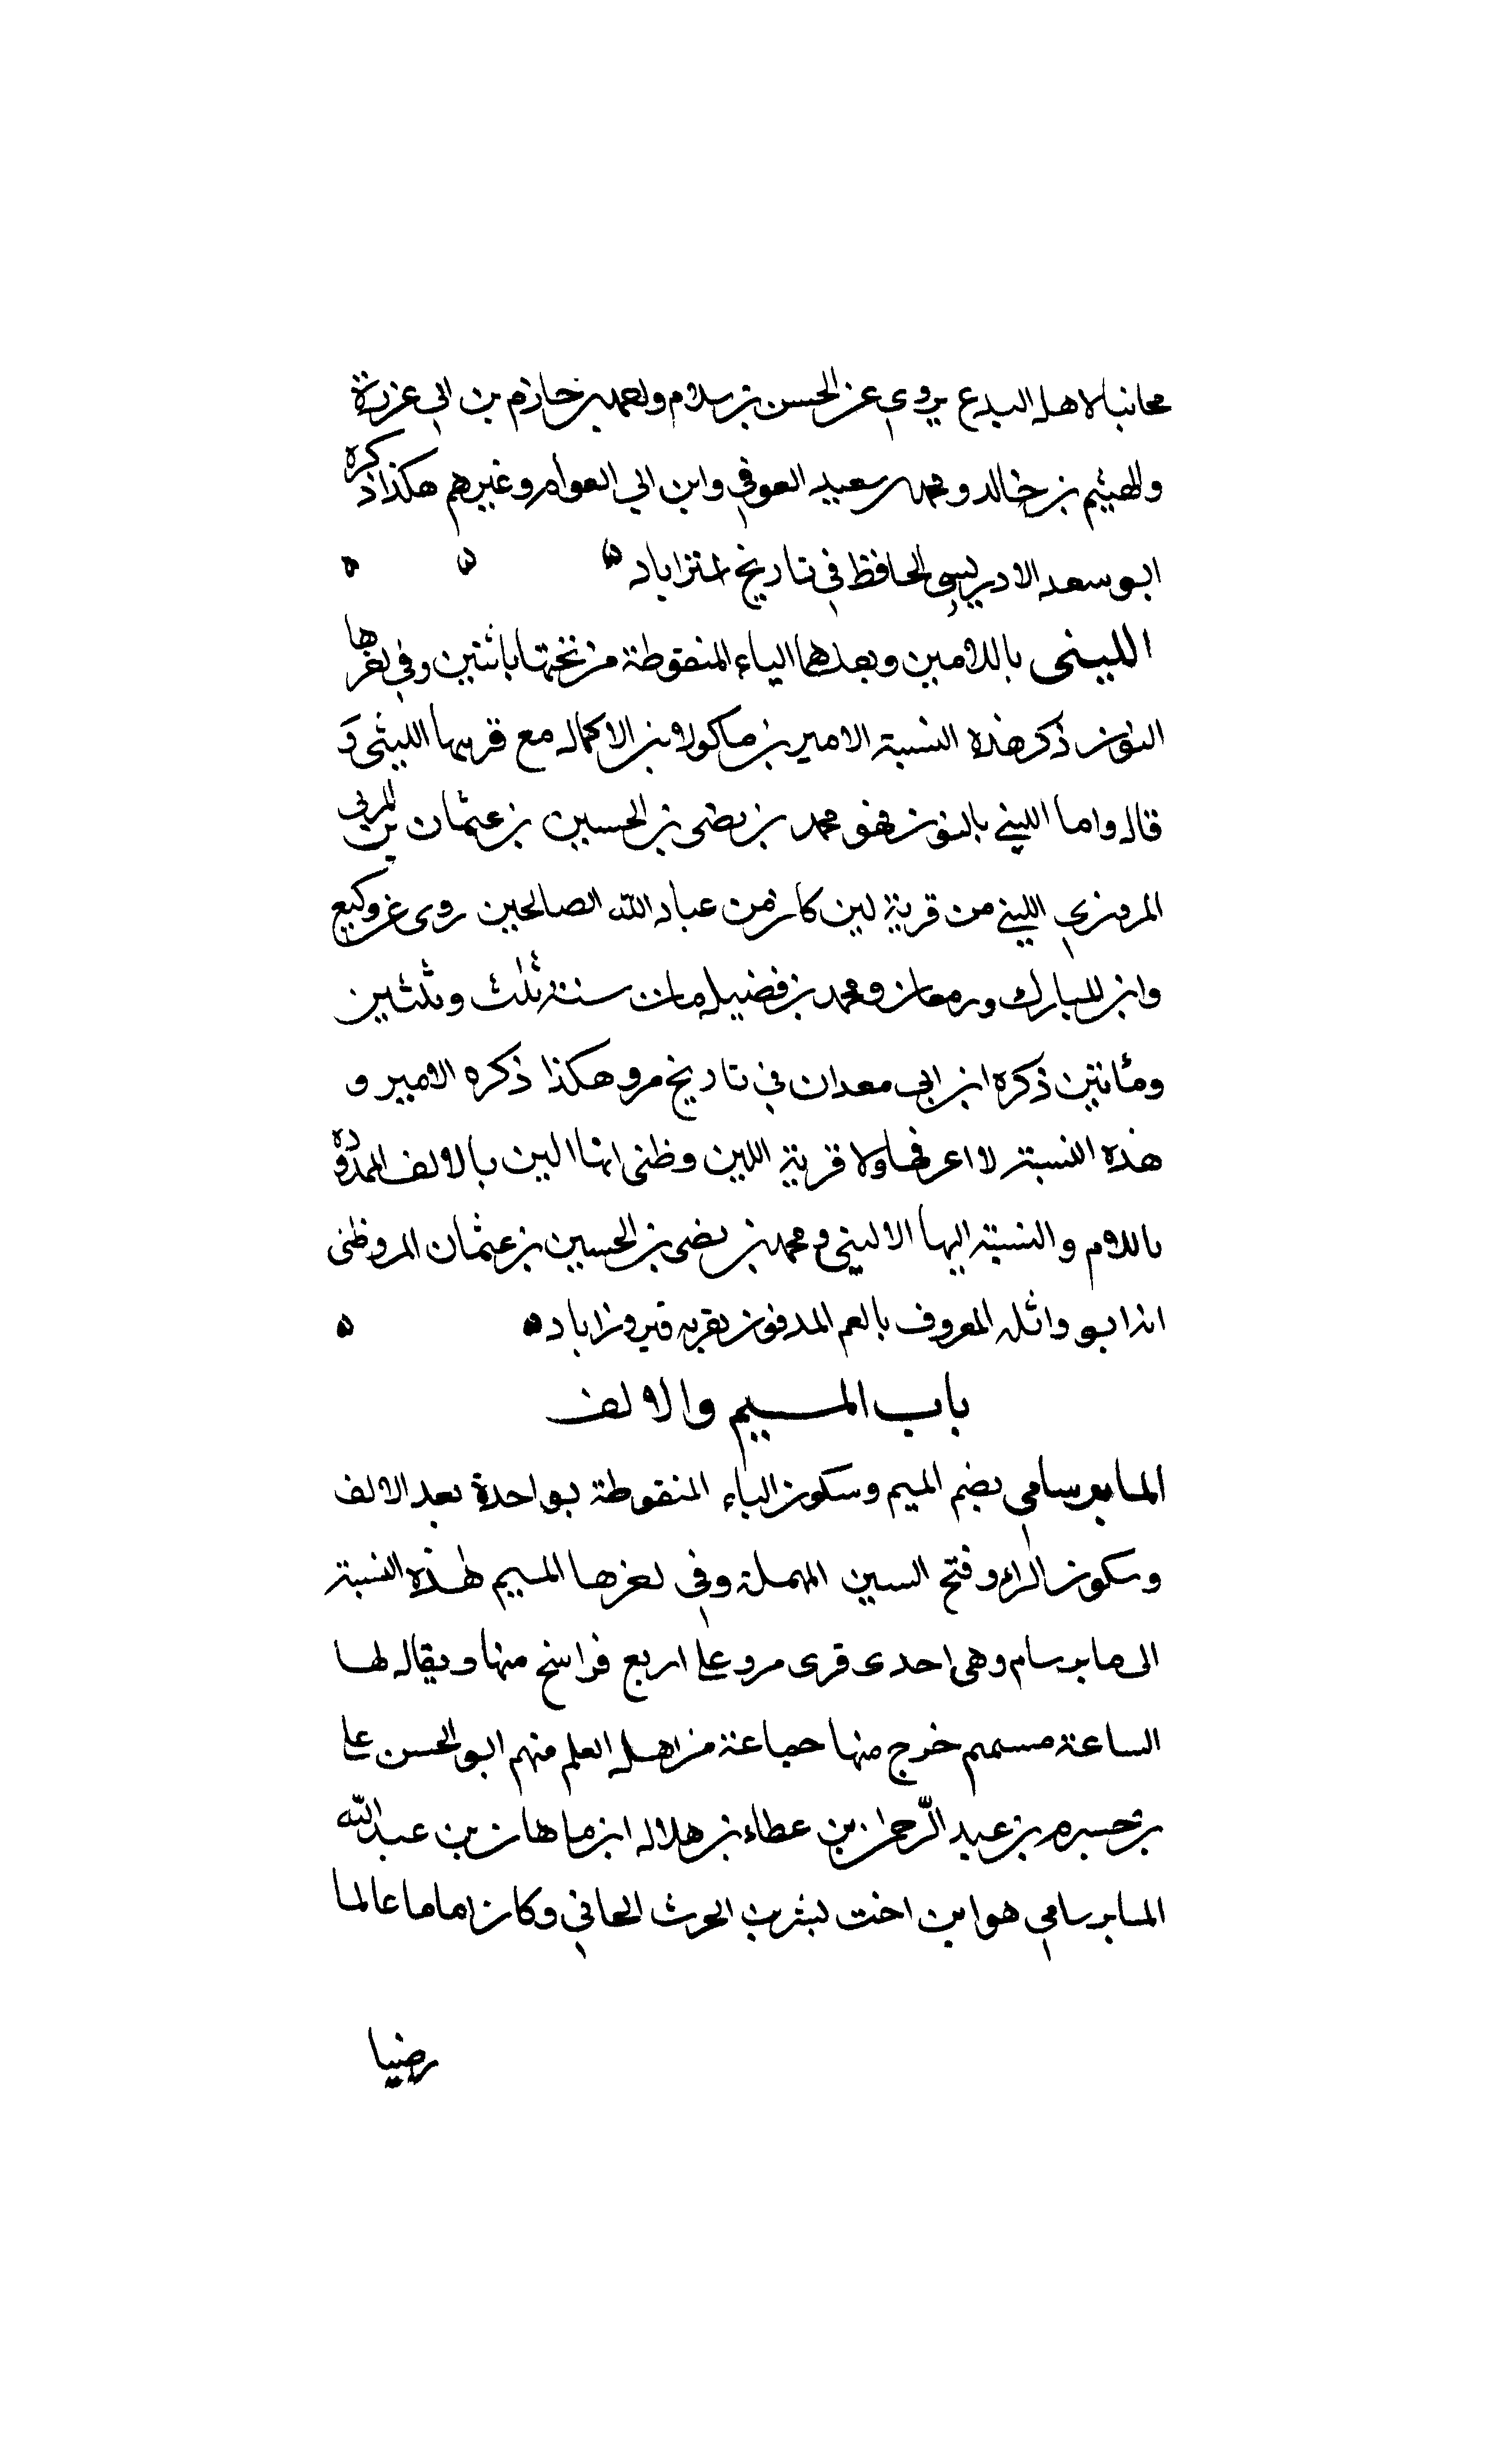 مجانبا لاهل البدع يروى عن الحسن بن سلام واحمد بن حازم بن ابى غرزة
والهيثم بن خالد ومحمد بن سعيد العوفى وابن ابى العوام وغيرهم هكذا ذكره
ابو سعد الادريسى الحافظ فى تاريخ استراباد ه ه ه
اللينى باللامين وبعدهما الياء المنقوطة من تحتها باثنتين وفى اخرها
النون ذكر هذه النسبة الامير بن ماكولا فى الاكمال مع قرينها الليثى و
قال واما اللينى بالنون فهو محمد بن نضى بن الحسين بن عثمان بن المزنى
المروزى اللينى من قرية لين كان من عباد الله الصالحين روى عن وكيع
وابن المبارك و ومحمد بن فضيل مات سنة ثلث وثلثين
ومائتين ذكره ابن ابى معدان فى تاريخ مرو هكذا ذكره الامير و
هذه النسبة لا اعرفها ولا قرية اللين وظنى انها الين بالالف الممدودة
باللام والنسبة اليها الالينى ومحمد بن نضى بن الحسين بن عثمان المروظنى
انه ابو واثله المعروف بالعم المدفون بقرية فيروزاباد ه ه
باب الميم والالف
المابرسامى بضم الميم وسكون الباء المنقوطة بواحدة بعد الالف
وسكون الراء وفتح السين المهملة وفى اخرها الميم هذه النسبة
الى مابرسام وهى احدى قرى مرو على اربع فراسخ منها ويقال لها
الساعة ميمسم خرج منها جماعة من اهل العلم منهم ابو الحسن على
بن خشرم بن عبد الرحمن بن عطاء بن هلال ابن ماهان بن عبد الله
المابرسامى هو ابن اخت بشر بن الحرث الحافى وكان اماما عالما
رضيا